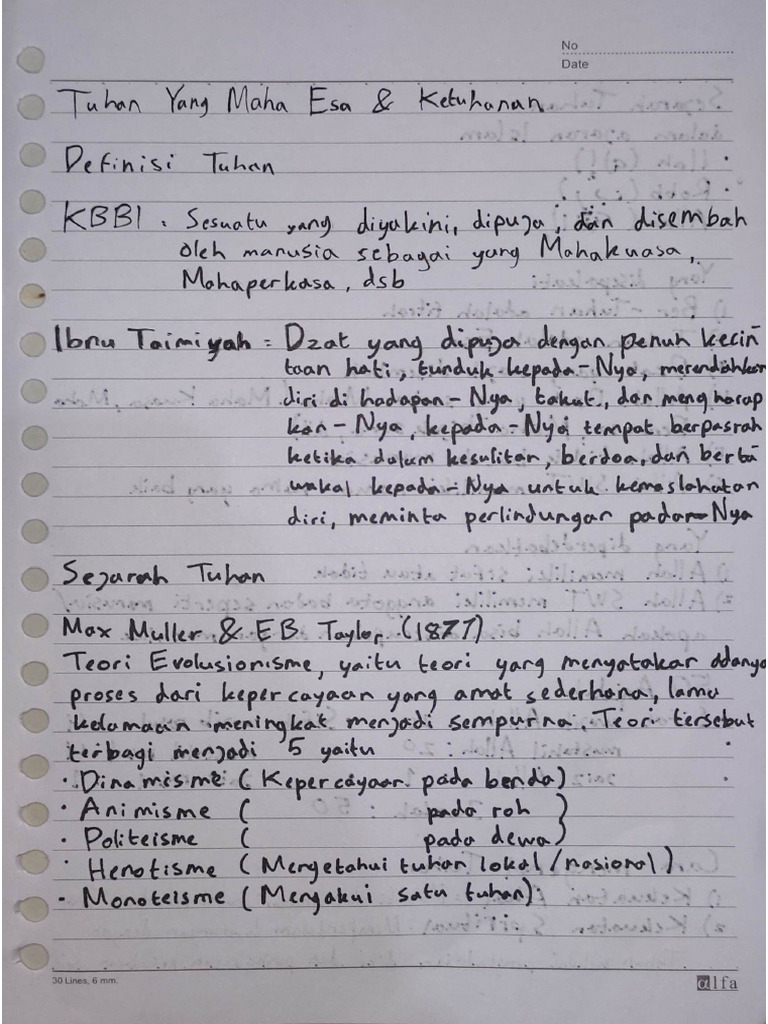 No
Date
Tuhan Yang Maha Esa & Ketuhanan
Definisi Tuhan
KBBI : Sesuatu yang diyakini, dipuja, dan disembah
oleh manusia sebagai yang Mahakuasa,
Mahaperkasa, dsb
Ibnu Taimiyah = Dzat yang dipuja dengan penuh kecin
taan hati, tunduk kepada-Nya, merendahkan
diri di hadapan-Nya, takut, dan mengharap
kan-Nya, kepada-Nya tempat berpasrah
ketika dalam kesulitan, berdoa, dan berta
wakal kepada-Nya untuk kemaslahatan
diri, meminta perlindungan pada-Nya
Sejarah Tuhan
Max Muller & EB Taylor (1877)
Teori Evolusionisme, yaitu teori yang menyatakan adanya
proses dari kepercayaan yang amat sederhana, lama
kelamaan meningkat menjadi sempurna. Teori tersebut
terbagi menjadi 5 yaitu
· Dinamisme (Kepercayaan pada benda)
· Animisme ( pada roh }
· Politeisme ( pada dewa)
· Henotisme (Mengetahui tuhan lokal/nasional)
· Monoteisme (Mengakui satu tuhan)
30 Lines, 6 mm.
αlfa